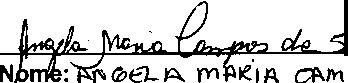 Angela Maria Campos da S
Nome: ANGELA MARIA CAM